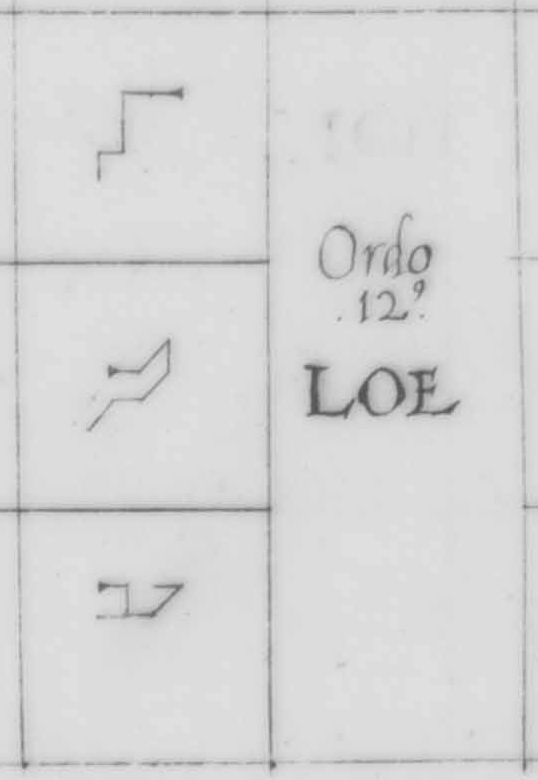 Ordo
.12⁹.
LOE